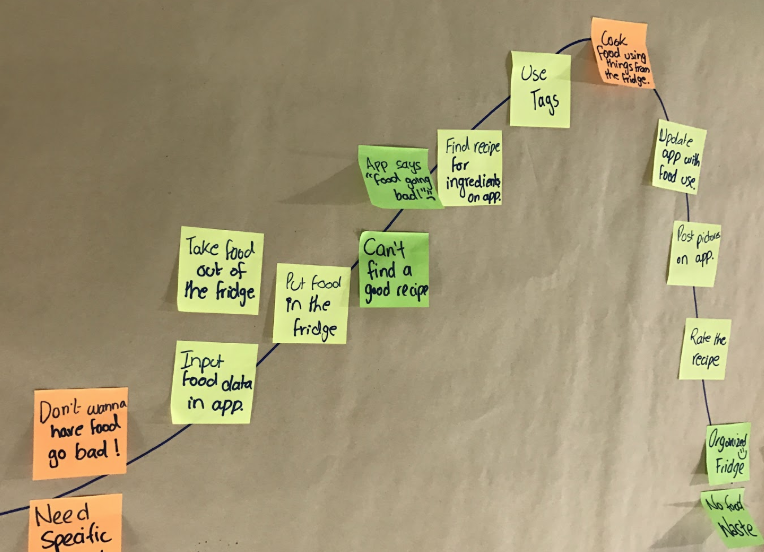 Don't wanna
have food
go bad!
Need
Specific
Take food
out of
the fridge
Input
food data
in app.
Put food
in the
fridge
App says
"food going
bad!"
Can't
find a
good recipe
Find recipe
for
ingredients
on app.
Use
Tags
Cook
food using
things from
the fridge.
Update
app with
food use.
Post pictures
on app.
Rate the
recipe
Organized
Fridge
No food
Waste